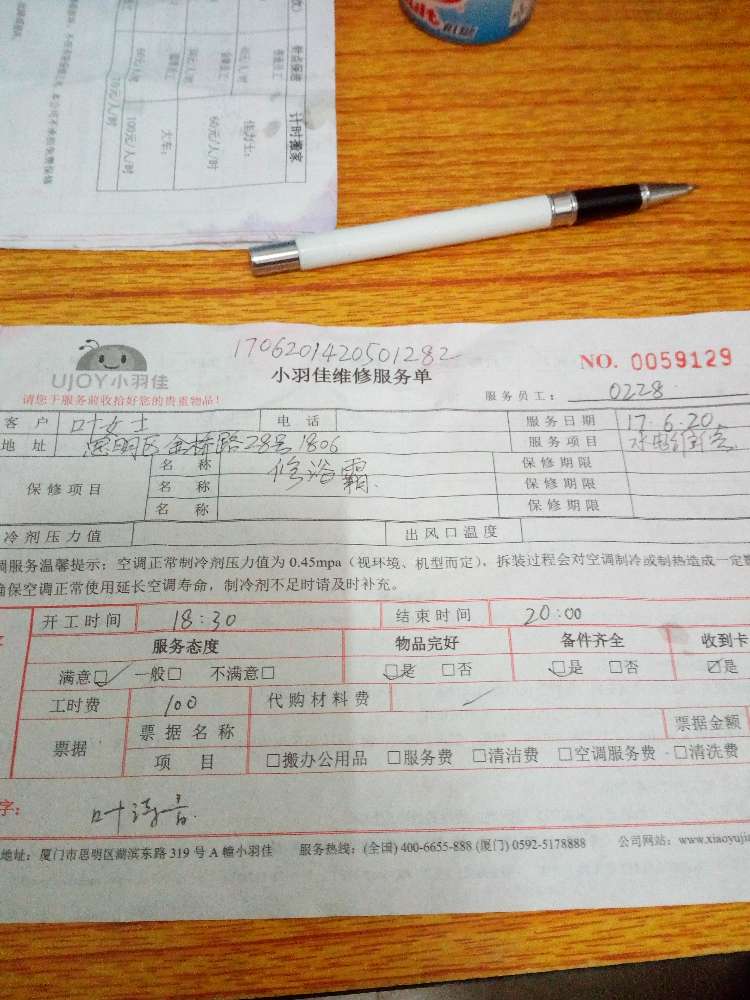 计时搬家
佳力士:
60元/人/时
大车:
100元/人/时
1706201420501282
UJOY小羽佳
小羽佳维修服务单
NO. 0059129
请您于服务前收拾好您的贵重物品!
服务员工: 0228
客户 叶女士 电话 服务日期 17.6.20
地址 思明区金桥路28号1806 服务项目
保修项目 名称 修浴霸 保修期限
名称 保修期限
名称 保修期限
冷剂压力值 出风口温度
调服务温馨提示:空调正常制冷剂压力值为0.45mpa(视环境、机型而定),拆装过程会对空调制冷或制热造成一定
确保空调正常使用延长空调寿命,制冷剂不足时请及时补充。
开工时间 18:30 结束时间 20:00
服务态度 物品完好 备件齐全 收到卡
满意☑ 一般□ 不满意□ ☑是 □否 ☑是 □否 ☑是
工时费 100 代购材料费
票据 票据名称 票据金额
项目 □搬办公用品 □服务费 □清洁费 □空调服务费 □清洗费
字:
地址:厦门市思明区湖滨东路319号A幢小羽佳 服务热线:(全国)400-6655-888(厦门)0592-5178888 公司网站:www.xiaoyuji